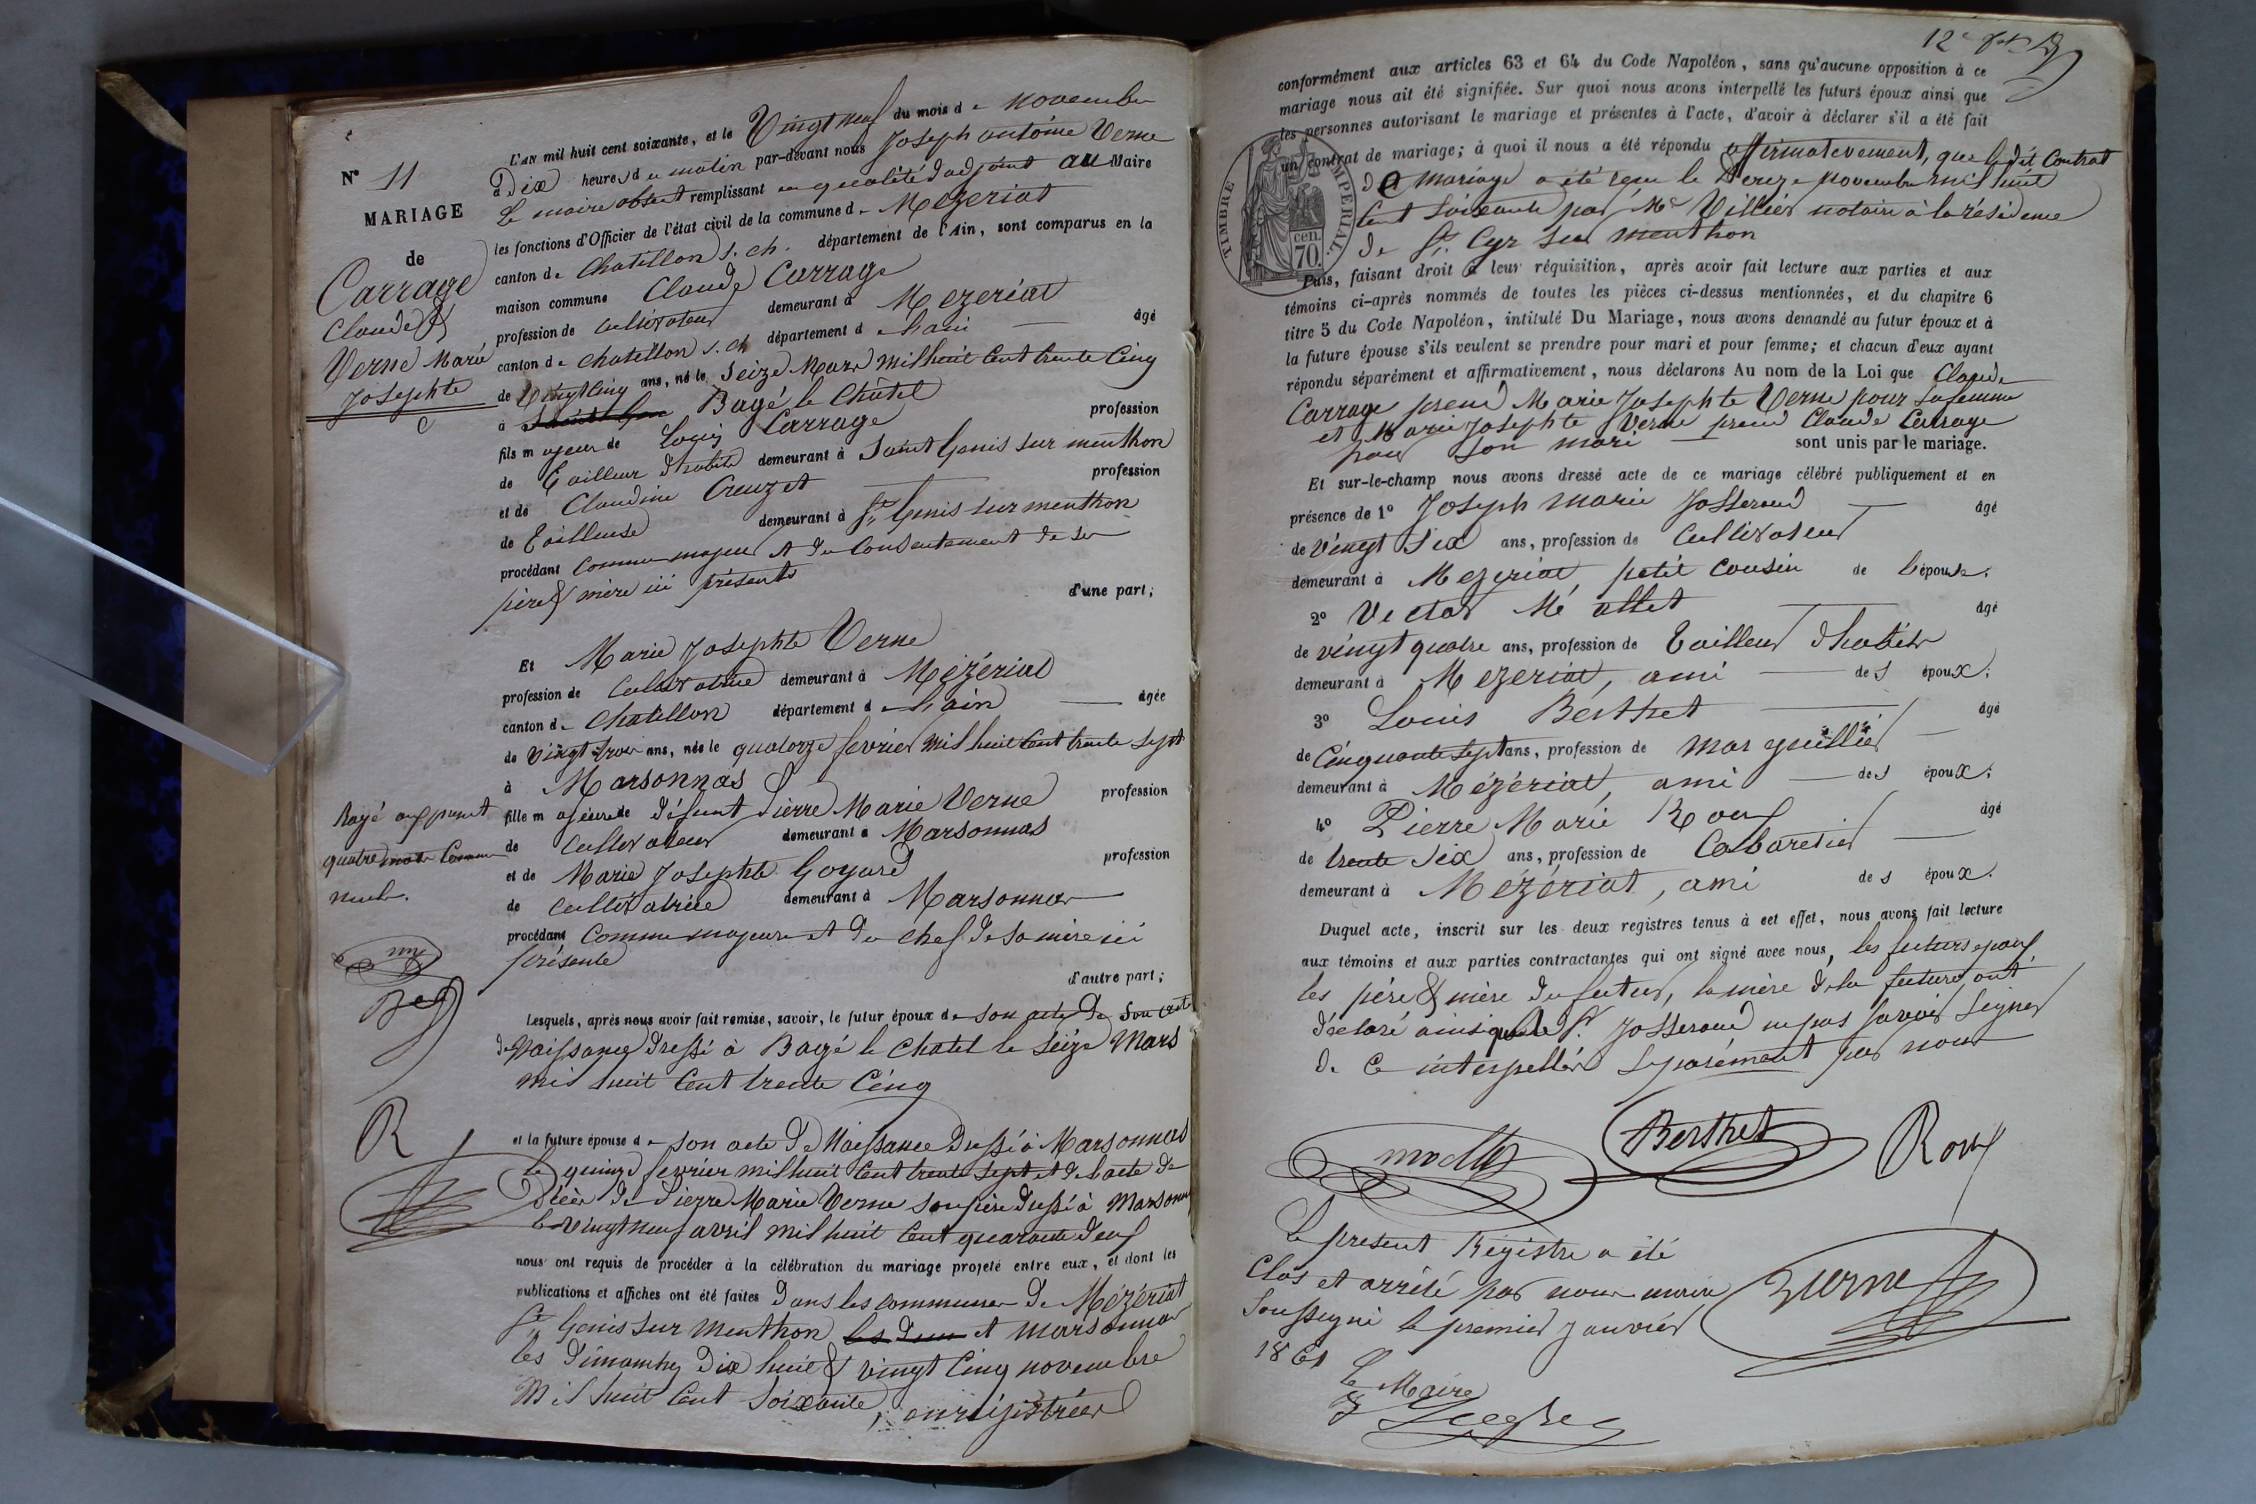 N° 11
MARIAGE
de
Carrage
Claude &
Verne Marie
Josephte
L'AN mil huit cent soixante, et le Vingt neuf du mois de novembre
à Dix heures du matin par-devant nous Joseph antoine Verne
le maire absent remplissant en qualité d'adjoint au Maire
les fonctions d'Officier de l'état civil de la commune de Mézeriat
canton de Chatillon s. ch. département de l'Ain, sont comparus en la
maison commune Claude Carrage
profession de cultivateur demeurant à Mezeriat
canton de chatillon s. ch département de l'ain — âgé
de Vingt Cinq ans, né le Seize Mars mil huit Cent trente Cinq
à Bagé le Châtel
fils majeur de Louis Carrage profession
de Tailleur d'habits demeurant à Saint Genis sur menthon
et de Claudine Creuzet profession
de Tailleuse demeurant à St Genis sur menthon
procédant Comme majeur et du Consentement de ses
père & mère ici présents d'une part;
Et Marie Josephte Verne
profession de Cultivatrice demeurant à Mézériat
canton de Chatillon département de l'ain — âgée
de vingt trois ans, née le quatorze fevrier mil huit Cent trente Sept
à Marsonnas
fille majeure de défunt Pierre Marie Verne profession
de Cultivateur demeurant à Marsonnas
et de Marie Josephte Goyard profession
de Cultivatrice demeurant à Marsonnas
procédant Comme majeure et du chef de sa mère ici
présente
d'autre part;
Rayé au présent
quatre mots Comme
nuls.
Lesques, après nous avoir fait remise, savoir, le futur époux de son acte de
de Naissance dressé à Bagé le Chatel le Seize Mars
mil huit Cent trente Cinq
et la future épouse de son acte de Naissance Dressé à Marsonnas
le quinze fevrier mil huit Cent trente Sept et de l'acte de
Décès de Pierre Marie Verne son père dressé à Marsonnas
le vingt neuf avril mil huit Cent quarante neuf
nous ont requis de procéder à la célébration du mariage projeté entre eux, et dont les
publications et affiches ont été faites Dans les communes de Mézériat
St Genis sur Menthon et Marsonnas
les Dimanches Dix huit & vingt Cinq novembre
Mil huit Cent Soixante, enrégistrées
12e
conformément aux articles 63 et 64 du Code Napoléon, sans qu'aucune opposition à ce
mariage nous ait été signifiée. Sur quoi nous avons interpellé les futurs époux ainsi que
les personnes autorisant le mariage et présentes à l'acte, d'avoir à déclarer s'il a été fait
un contrat de mariage; à quoi il nous a été répondu affirmativement, que le dit Contrat
de mariage a été reçu le Seize novembre mil huit
Cent Soixante par Me Villier notaire à la résidence
de St. Cyr sur menthon
TIMBRE IMPERIAL
cen.
70.
Puis, faisant droit à leur réquisition, après avoir fait lecture aux parties et aux
témoins ci-après nommés de toutes les pièces ci-dessus mentionnées, et du chapitre 6
titre 5 du Code Napoléon, intitulé Du Mariage, nous avons demandé au futur époux et à
la future épouse s'ils veulent se prendre pour mari et pour femme; et chacun d'eux ayant
répondu séparément et affirmativement, nous déclarons Au nom de la Loi que Claude
Carrage prend Marie Josephte Verne pour Sa femme
et Marie Josephte Verne prend Claude Carrage
pour Son mari — sont unis par le mariage.
Et sur-le-champ nous avons dressé acte de ce mariage célébré publiquement et en
présence de 1° Joseph Marie Josserand — âgé
de vingt Six ans, profession de Cultivateur
demeurant à Mezeriat, petit cousin de l'épouse;
2° Vector Mallet — âgé
de vingt quatre ans, profession de Tailleur d'habits
demeurant à Mezeriat, ami — des époux;
3° Louis Berthet — âgé
de Cinquante Sept ans, profession de Marguillier —
demeurant à Mézériat, ami — des époux;
4° Pierre Marie Roux âgé
de trente Six ans, profession de Cabaretier —
demeurant à Mézériat, ami des époux.
Duquel acte, inscrit sur les deux registres tenus à cet effet, nous avons fait lecture
aux témoins et aux parties contractantes qui ont signé avec nous, les futurs époux
les père & mère du futur, la mère de la future, ont
déclaré ainsi que le Sr Josserand ne pas savoir Signer
de Ce interpellés Séparément par nous
Berthet
Roux
Verne
Le présent Régistre a été
Clos et arrêté par nous maire
Soussigné le premier Janvier
1861
Le Maire